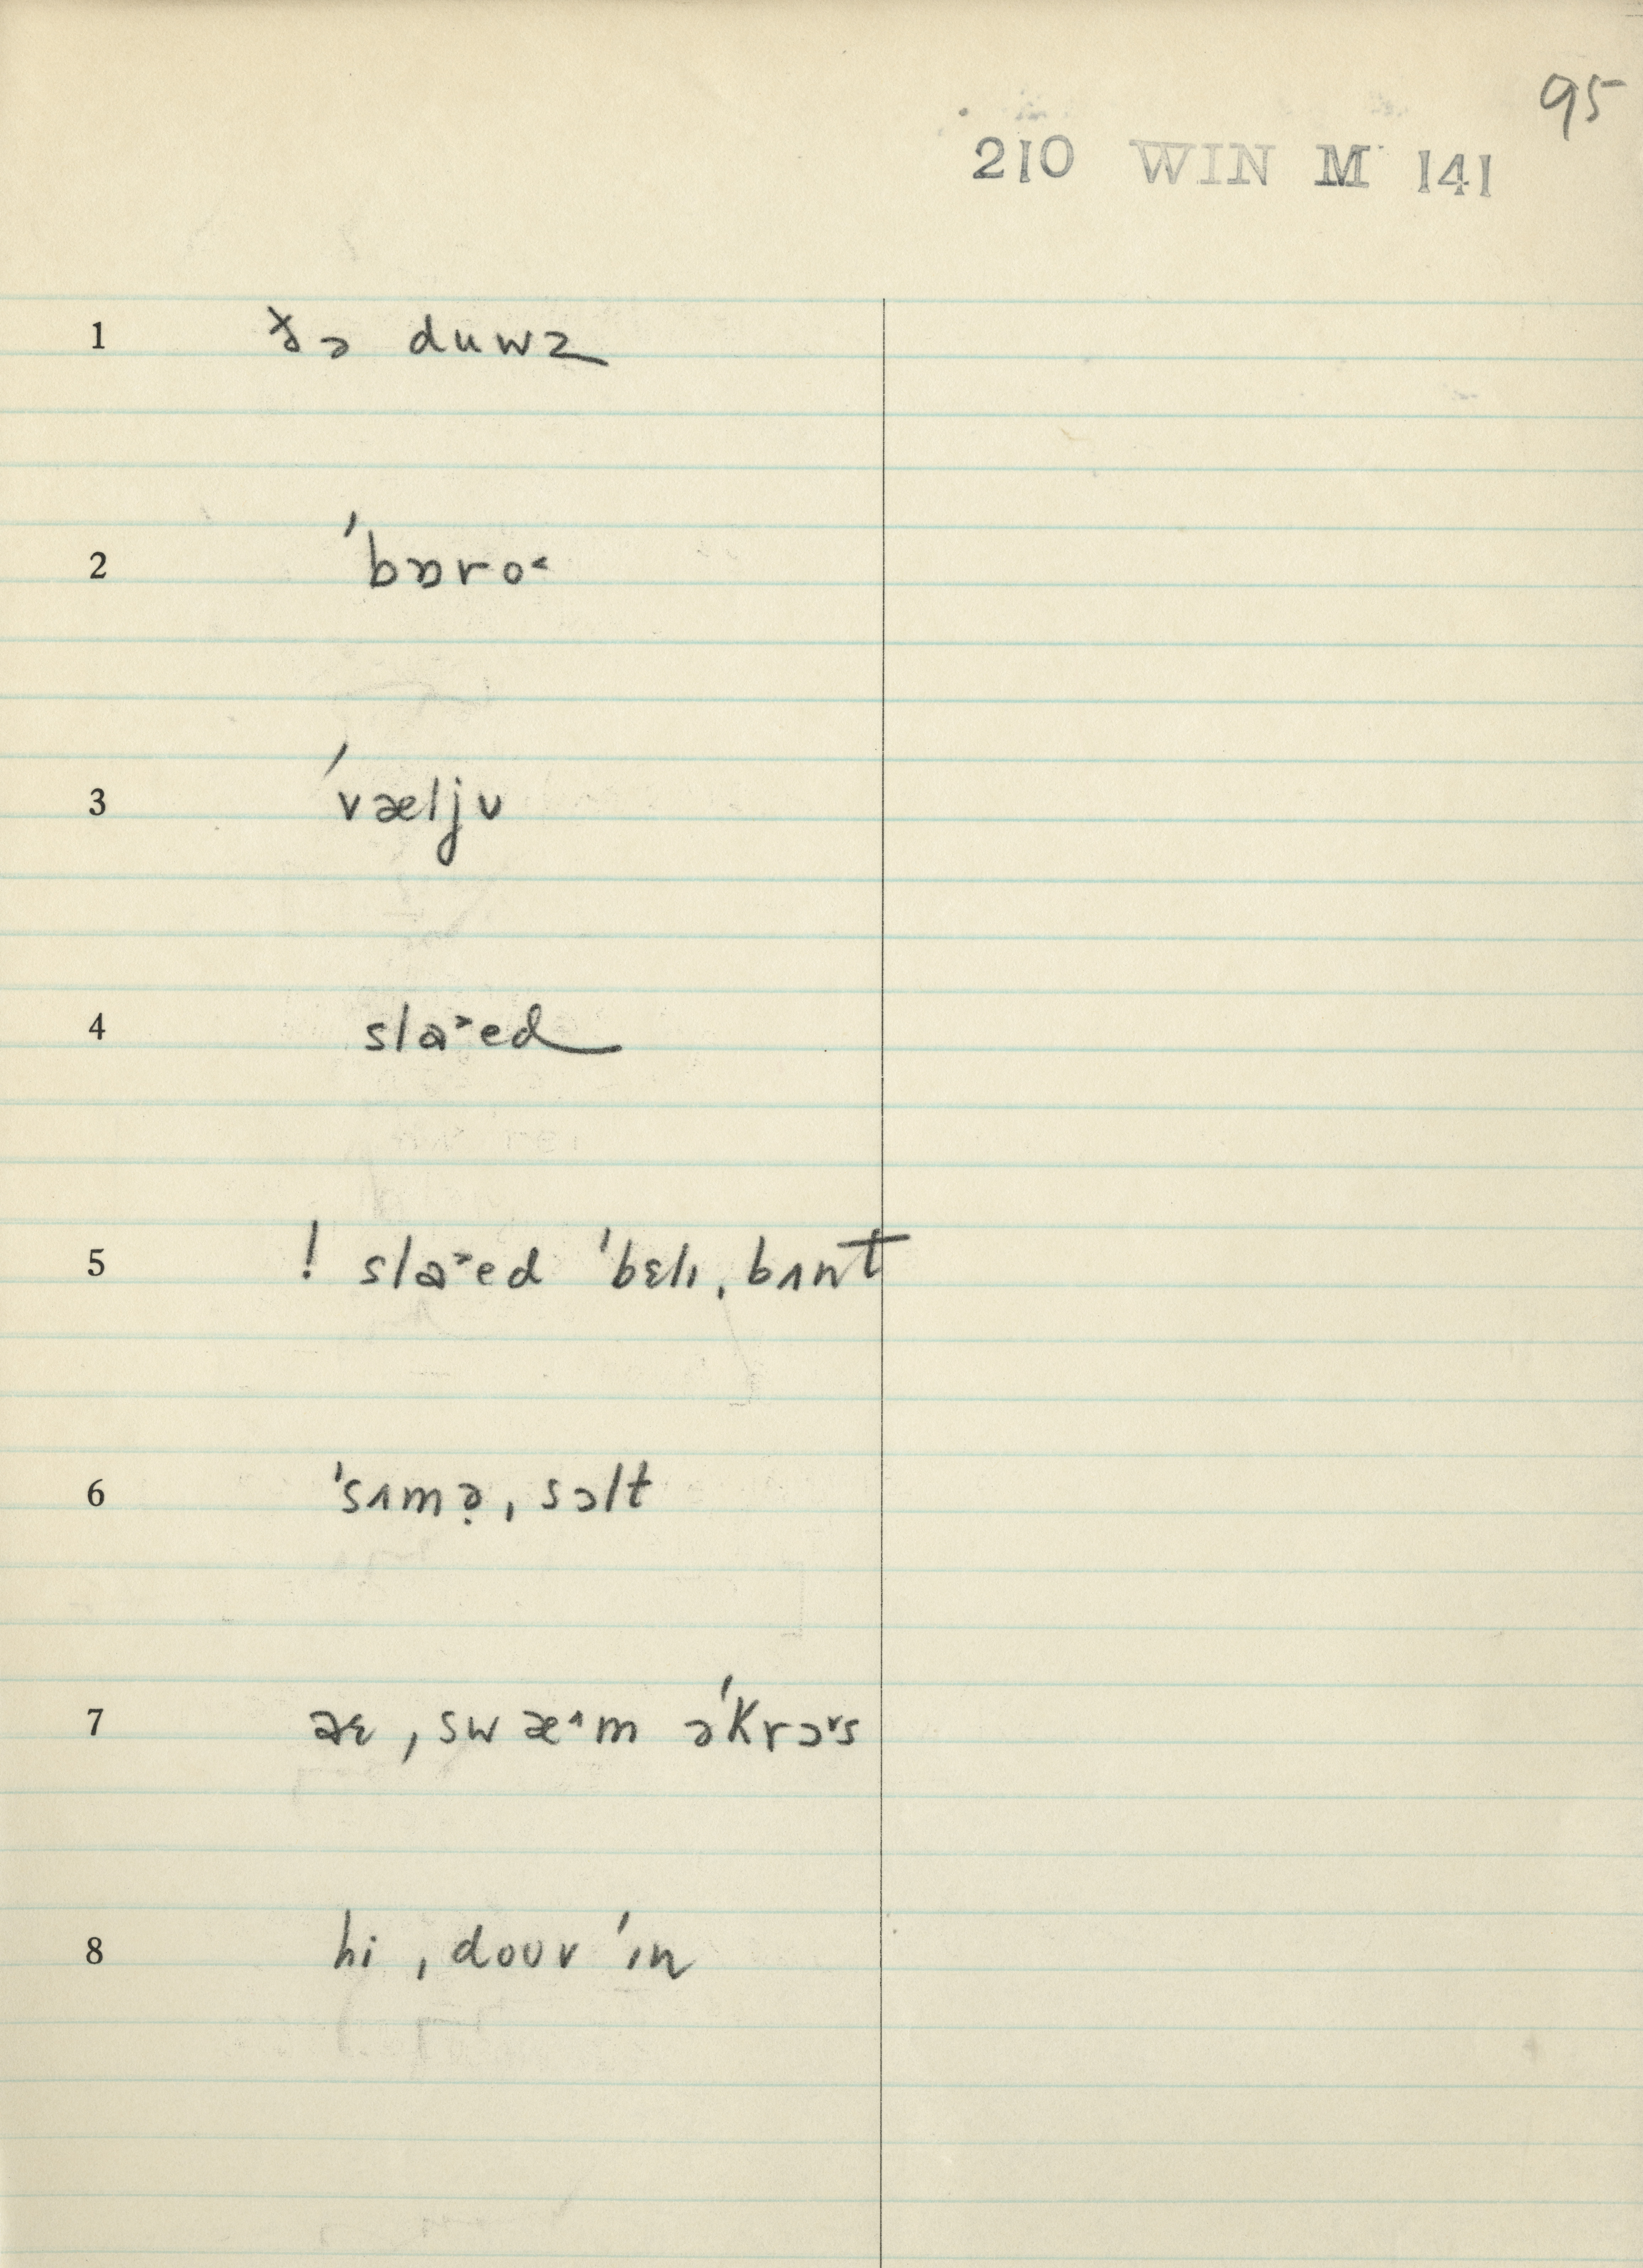 95
210 WIN M 141
1 ðə duwz
2 ˈbɒro˂
3 ˈvæljʊ
4 sla˃ed
5 ! sla˃ed ˈbɛlɪ, bʌnt
6 ˈsʌmə̣, sɔlt
7 ˌswæ˄m əˈkrɔ˅s
8 hi ˌdoʊv ˈɪn